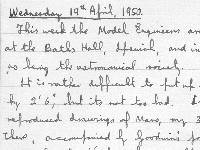 Wednesday 19th April, 1950.
This week the Model Engineers are
at the Baths Hall, Ipswich, and in
so being the astronomical society.
It is rather difficult to put up
by 2'6", but its not too bad. I
reproduced drawings of Mars, my 3
thers, accompanied by Goodwin's for